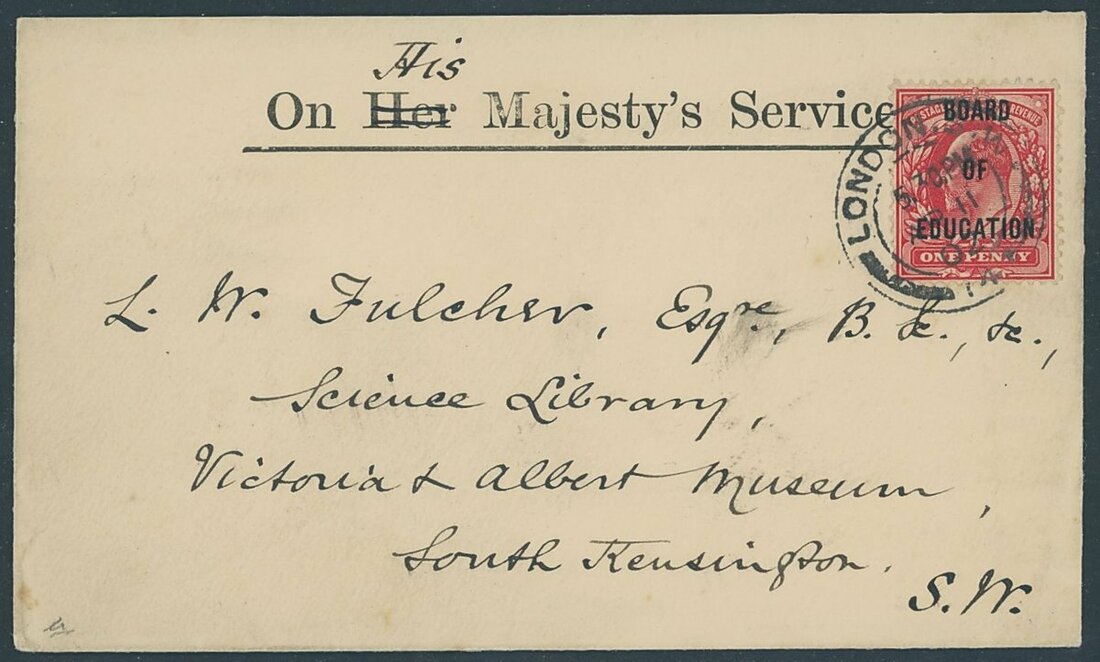 His
On Her Majesty's Service
POSTAGE REVENUE
BOARD
OF
EDUCATION
ONE PENNY
LONDON. S.W.
5.30PM
11
02
14
L. W. Fulcher, Esqre., B.Sc., &c.,
Science Library,
Victoria & Albert Museum,
South Kensington.
S.W.